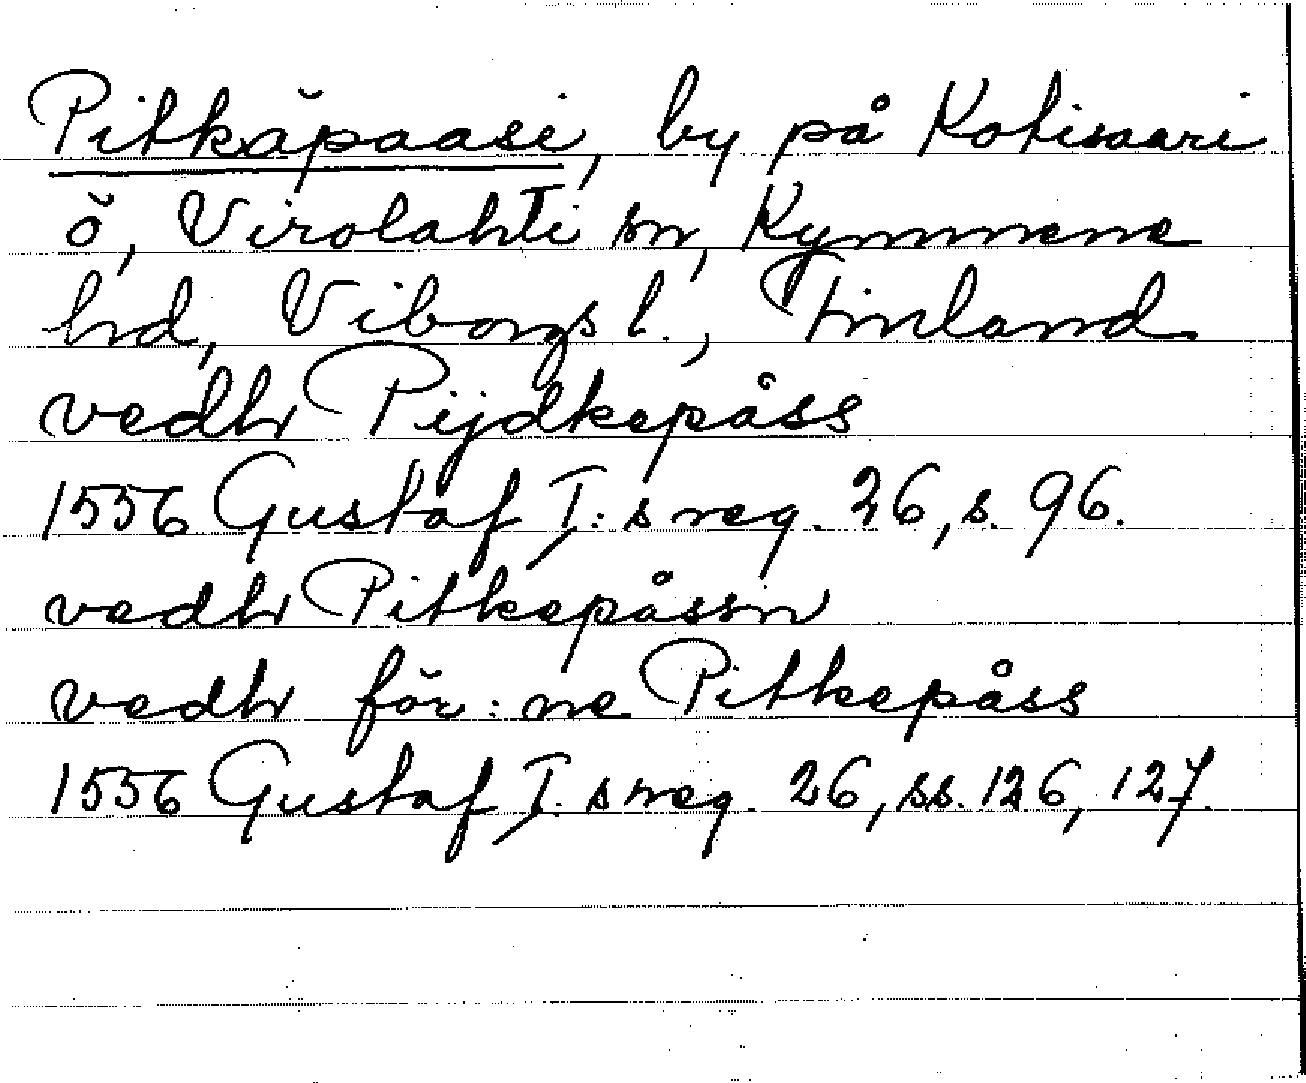 Pitkäpaasi, by på Kotisaari
ö, Virolahti sn, Kymmene
hd, Viborgs l., Finland
vedh Pijdkepåss
1556 Gustaf I:s reg. 26, s. 96.
vedh Pitkepåssn
vedh för:ne Pitkepåss
1556 Gustaf I:s reg. 26, ss. 126, 127.